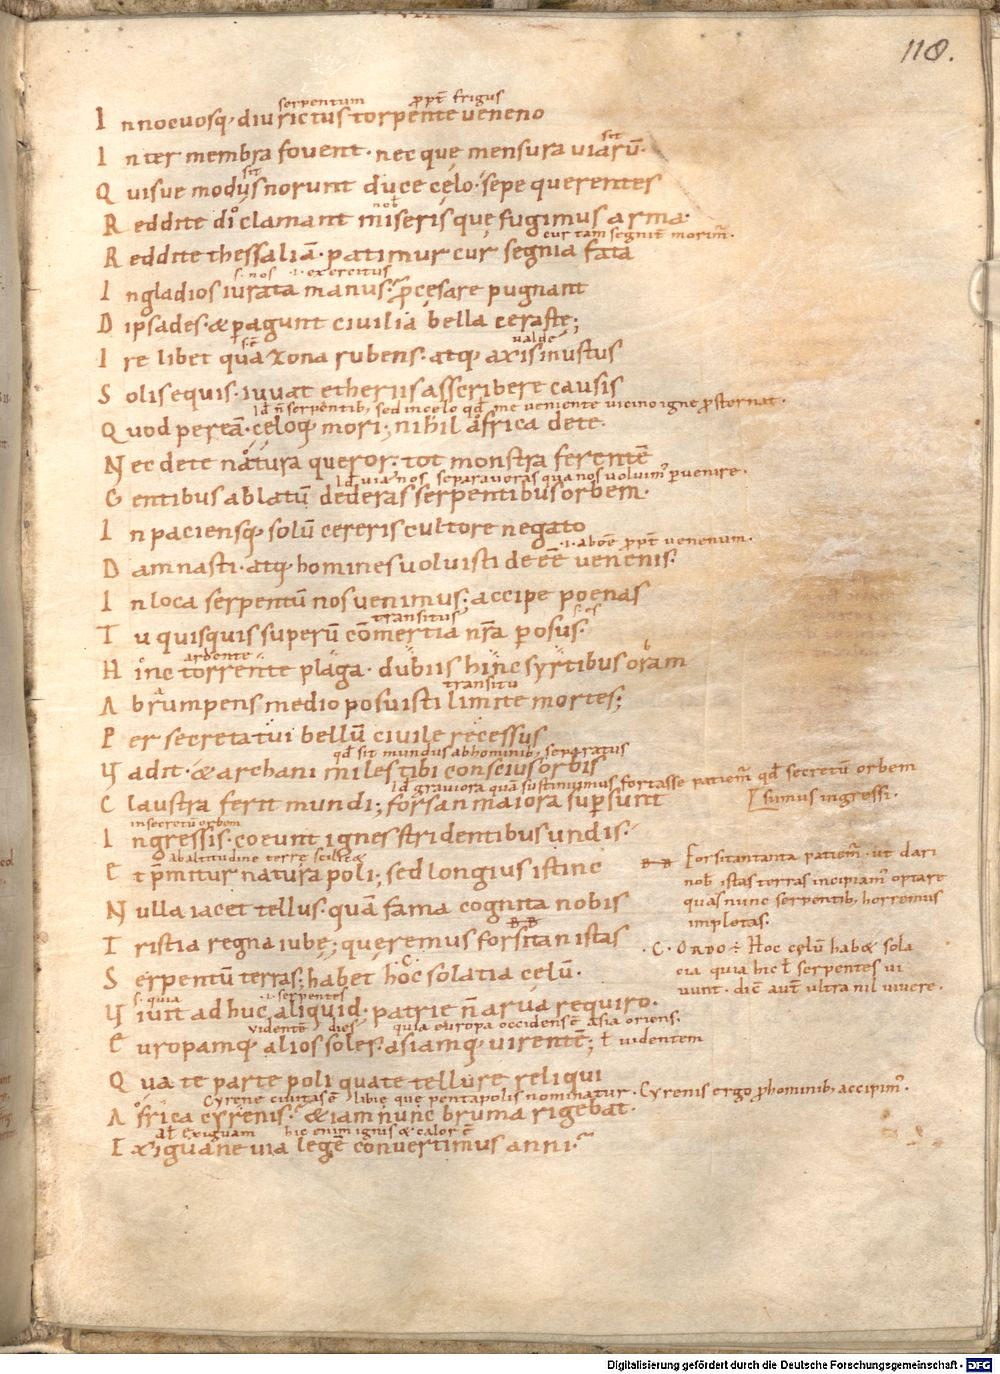 118.
serpentum ꝓpt̄ frigus
I nnocuosq; diu rictus torpente ueneno
sit
I nter membra fouent. nec que mensura uiarū.
sit
Q uisue modus norunt duce celo. sepe querentes
nob̄
R eddite di clamant miseris que fugimus arma.
cur tam segnit̄ morim̄.
R eddite thessaliā. patimur cur segnia fata
s. nos .i. exercitus
I n gladios iurata manus. ꝓ cesare pugnant
D ipsades. & ꝑagunt ciuilia bella ceraste;
s. ē ualde
I re libet qua zona rubens. atq; axis inustus
S olis equis. iuuat etheriis asscribere causis
Id ē n̄ serpentib; sed in celo qd̄ me ueniente uicino igne ꝓsternat.
Q uod pereā. celoq; mori; nihil africa de te.
N ec de te natura queror. tot monstra ferentē
Id uiā nos separaueras qua nos uoluim̄ ꝑuenire.
G entibus ablatū dederas serpentibus orbem.
I npaciensq; solū cereris cultore negato
.i. abēe ꝓpt̄ uenenum.
D amnasti. atq; homines uoluisti deēē uenenis.
I n loca serpentū nos uenimus; accipe poenas
transitus s. es
T u quisquis superū cōmertia nr̄a ꝑosus.
ardente
H inc torrente plaga. dubiis hinc syrtibus orbam
transitu
A brumpens medio posuisti limite mortes;
P er secreta tui bellū ciuile recessus
qd̄ sit mundus ab hominib; separatus
V adit. & archani miles tibi conscius orbis
Id grauiora quā sustinuimus fortasse patiem̄ qd̄ secretū orbem
C laustra ferit mundi; forsan maiora suꝑsunt [sumus ingressi.
in secretū orbem
I ngressis. coeunt ignes stridentibus undis.
ab altitudine terre scilic&
E t p̄mitur natura poli; sed longius istinc
N ulla iacet tellus. quā fama cognita nobis
T ristia regna iube; queremus forsitan istas
.C.
S erpentū terras; habet hoc solatia celū.
s. quia .i. serpentes
V iuit adhuc aliquid. patrie n̄ arua requiro.
uidentē dies quia europa occidens ē asia oriens.
E uropamq; alios soles. asiamq; uirentē; ł uidentem
Q ua te parte poli qua te tellure reliqui
Cyrene ciuitas ē libie que pentapolis nominatur. Cyrenis ergo ꝓ hominib; accipim̄.
A frica cyrenis. & iam nunc bruma rigebat.
al̄ Exiguam hic enim ignis & calor ē
E xiguane uia legē conuertimus anni.
Forsitan tanta patiem̄. ut dari
nob̄ istas terras incipiam̄ optare
quas nunc serpentib; horremus
impletas.
.C. ORDO: Hoc celū hab& sola
cia quia hic ł serpentes ui
uunt. dic̄ aut̄ ultra nil uiuere.
Digitalisierung gefördert durch die Deutsche Forschungsgemeinschaft - DFG